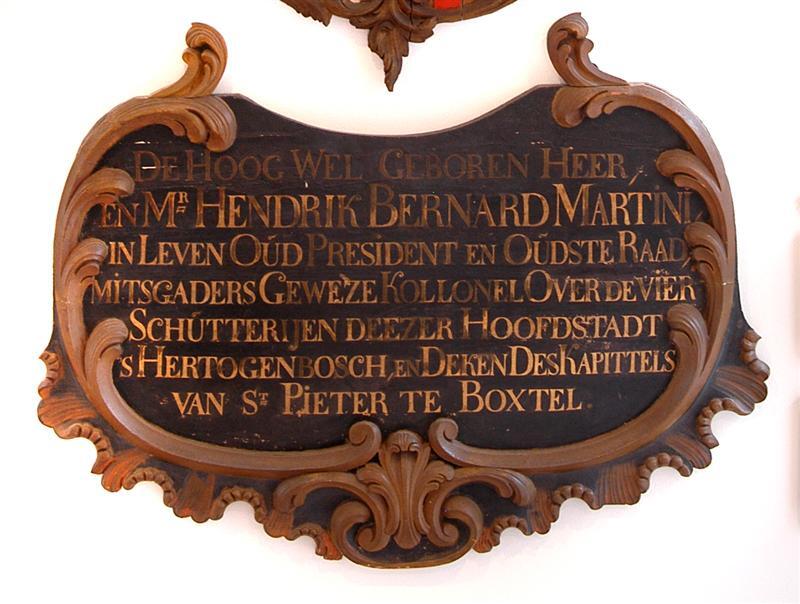 DE HOOG WEL GEBOREN HEER
EN Mr HENDRIK BERNARD MARTINI
IN LEVEN OŨD PRESIDENT EN OŨDSTE RAAD
MITSGADERS GEWEZE KOLLONEL OVER DE VIER
SCHŨTTERIJEN DEEZER HOOFDSTADT
'S HERTOGENBOSCH, EN DEKEN DES KAPITTELS
VAN St PIETER TE BOXTEL.